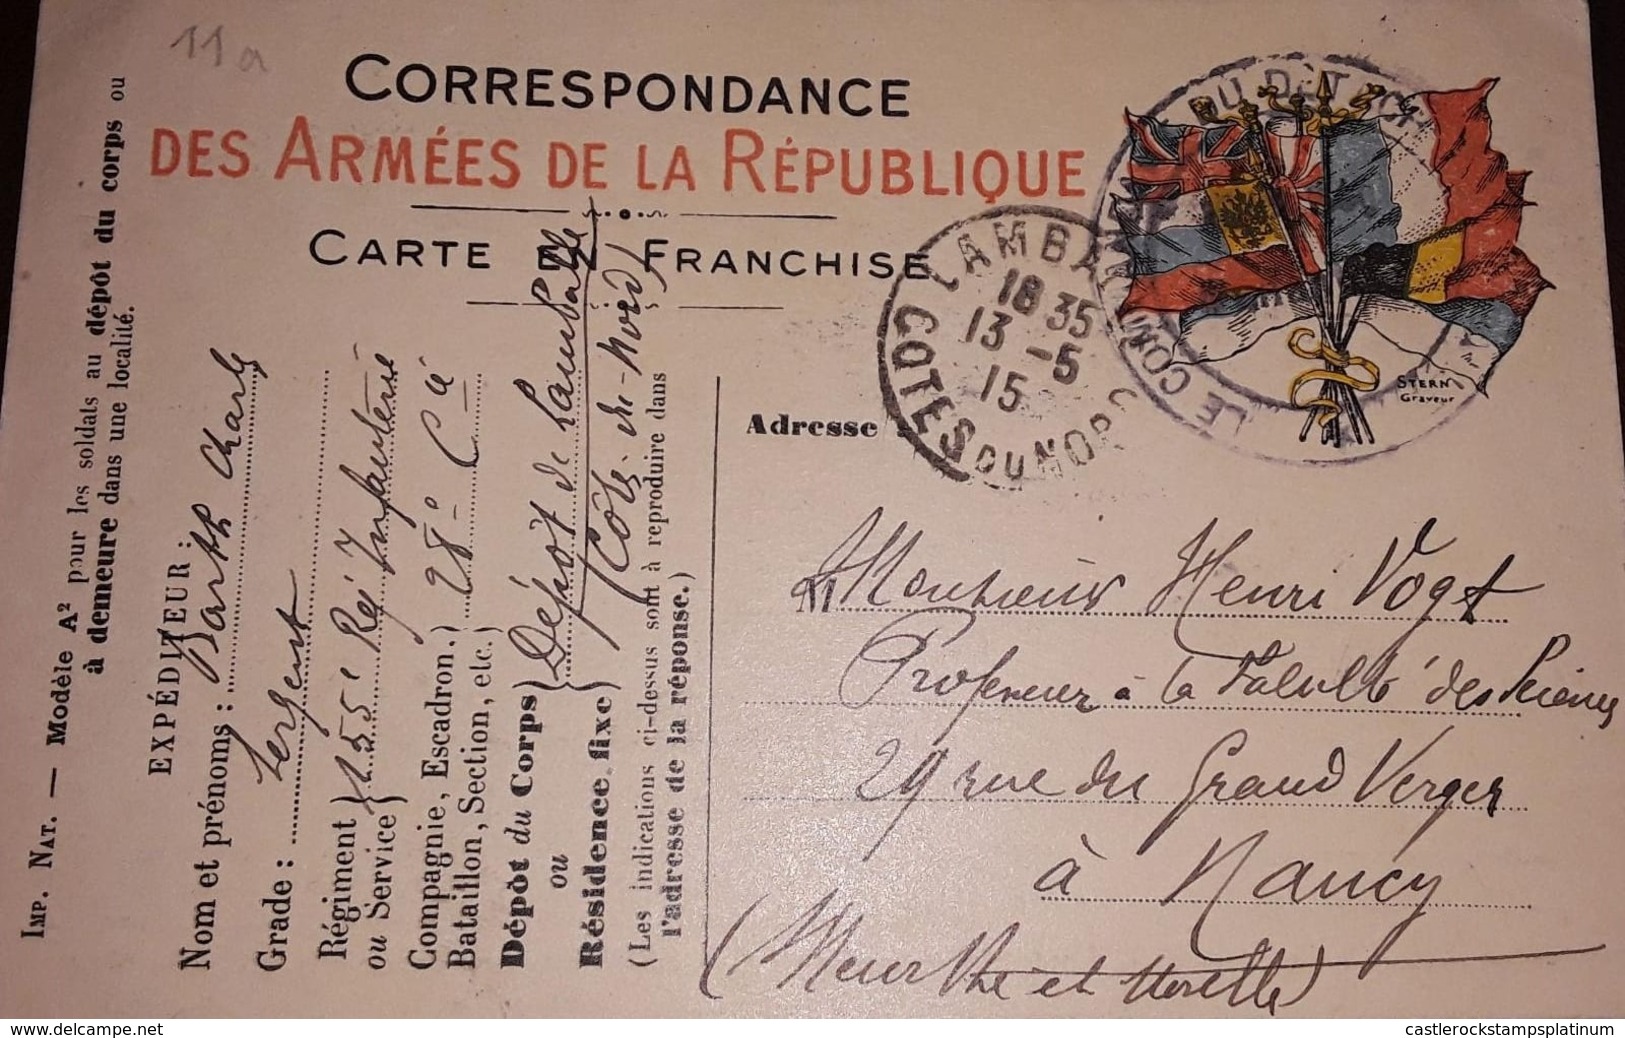 11a
CORRESPONDANCE
DES ARMÉES DE LA RÉPUBLIQUE
CARTE EN FRANCHISE
LAMBA
18 35
13 - 5
15
COTES DU NORD
LE COM
STERN
Graveur
Adresse
Monsieur Henri Vogt
Professeur à la Faculté des Sciences
29 rue du Grand Verger
à Nancy
(Meurthe et Moselle)
IMP. NAT. — Modèle A² pour les soldats au dépôt du corps ou
à demeure dans une localité.
EXPÉDITEUR :
Nom et prénoms : Barth Charles
Grade : Sergent
Régiment
ou Service } 155e Reg Infanterie
Compagnie, Escadron.
Bataillon, Section, etc. } 28e Cie
Dépôt du Corps
ou
Résidence fixe } Dépôt de Lamballe
(Côtes-du-Nord)
(Les indications ci-dessus sont à reproduire dans
l'adresse de la réponse.)
delcampe.net
castlerockstampsplatinum